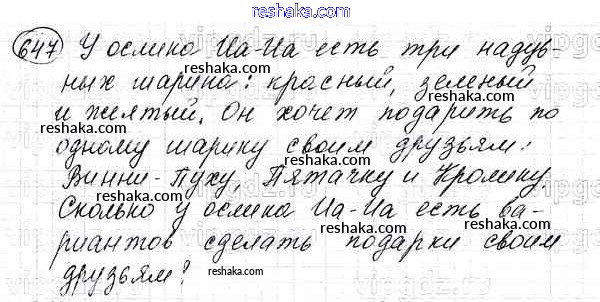 reshaka.com
647 У ослика Иа-Иа есть три надув-
ных шарика: красный, зеленый
и желтый. Он хочет подарить по
reshaka.com reshaka.com
одному шарику своим друзьям:
reshaka.com
Винни-Пуху, Пятачку и Кролику.
reshaka.com
Сколько у ослика Иа-Иа есть ва-
reshaka.com reshaka.com
риантов сделать подарки своим
друзьям?
reshaka.com
reshaka.com